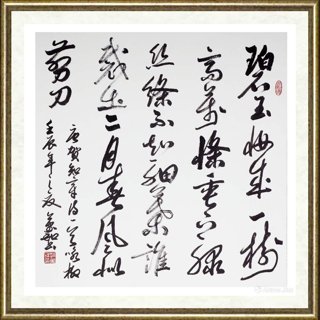 碧玉妝成一樹
高萬條垂下綠
絲絛不知細葉誰
裁出二月春風似
剪刀
唐賀知章詩詠柳
壬辰年之夏書